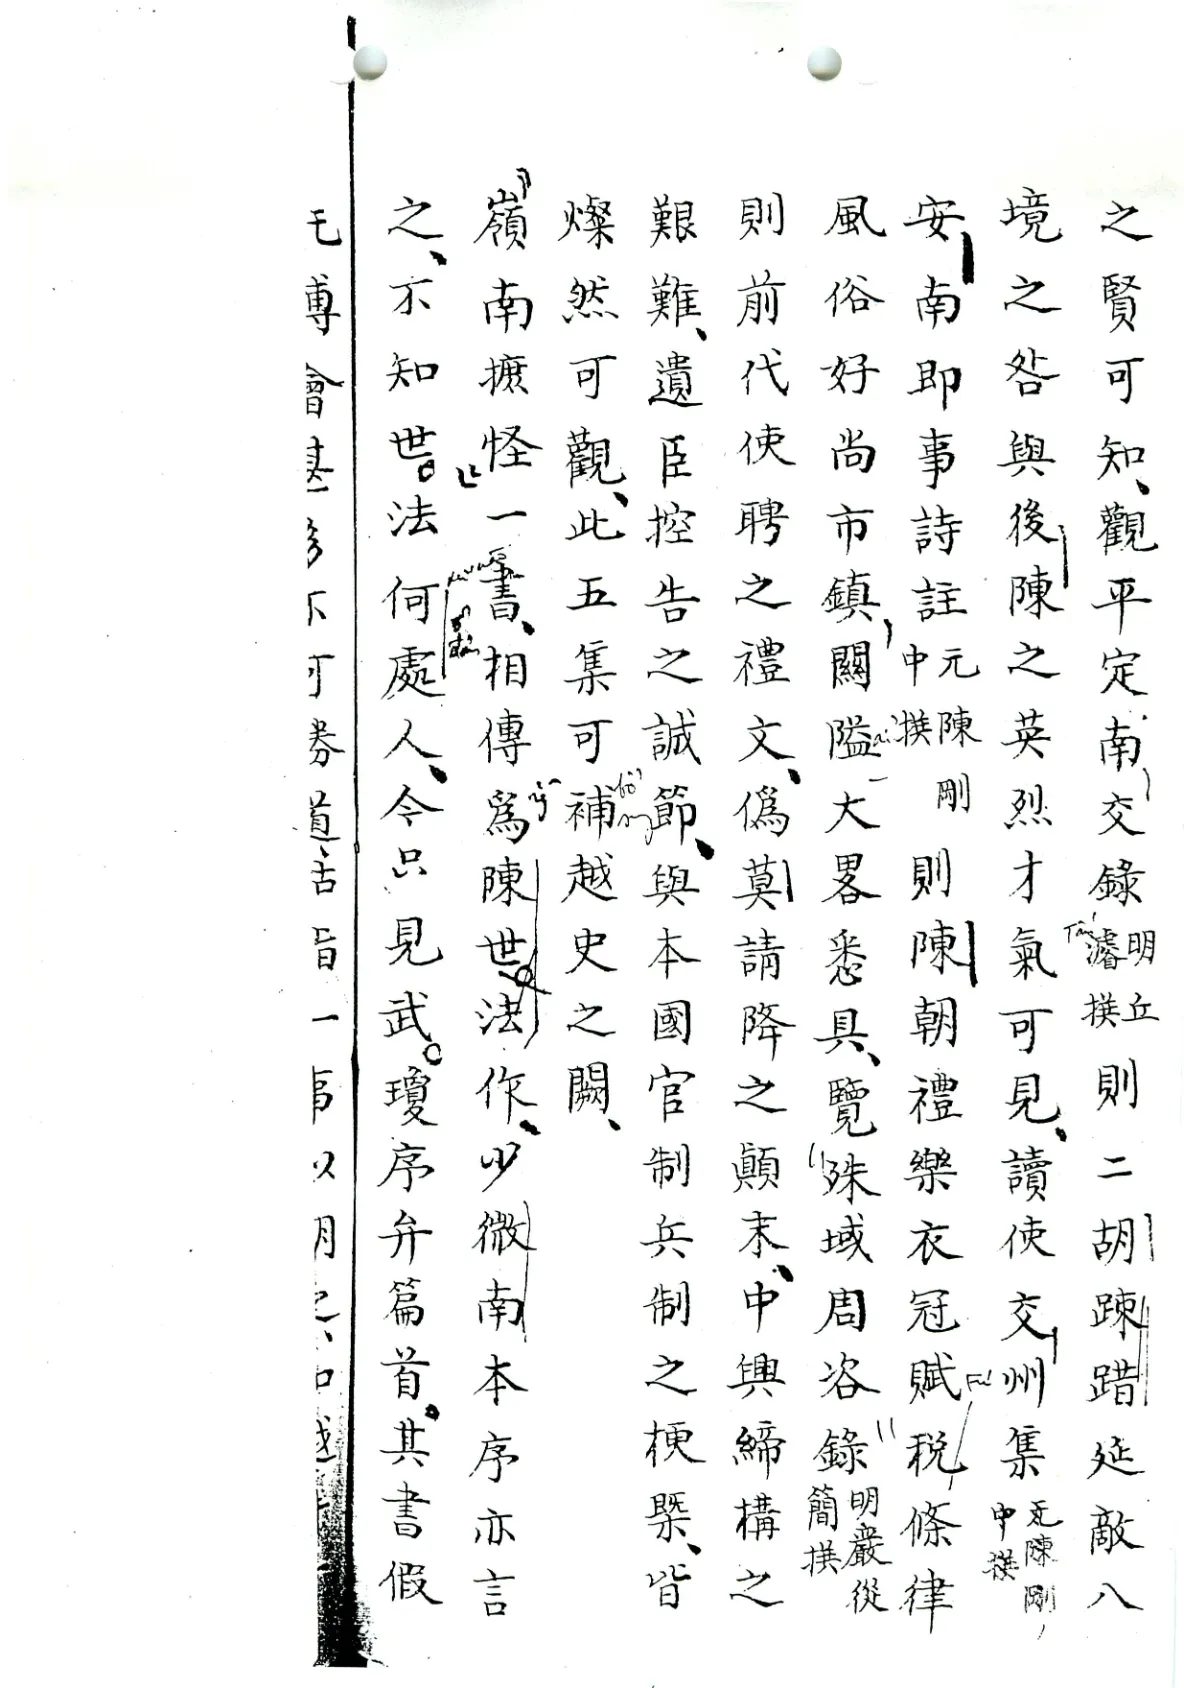 之賢可知、觀平定南交錄明丘濬撰則二胡踈踖延敵八
境之咎與後陳之英烈才氣可見、讀使交州集元陳剛中撰
安南即事詩註元陳剛中撰則陳朝禮樂衣冠賦税條律
風俗好尚市鎮關隘大畧悉具、覽殊域周咨錄明嚴從簡撰
則前代使聘之禮文、僞莫請降之顛末、中興締構之
艱難、遺臣控告之誠節、與本國官制兵制之梗槩、皆
燦然可觀、此五集可補越史之闕、
嶺南摭怪一書、相傳爲陳世法作、少微南本序亦言
之、不知世法何處人、今只見武瓊序弁篇首。其書假